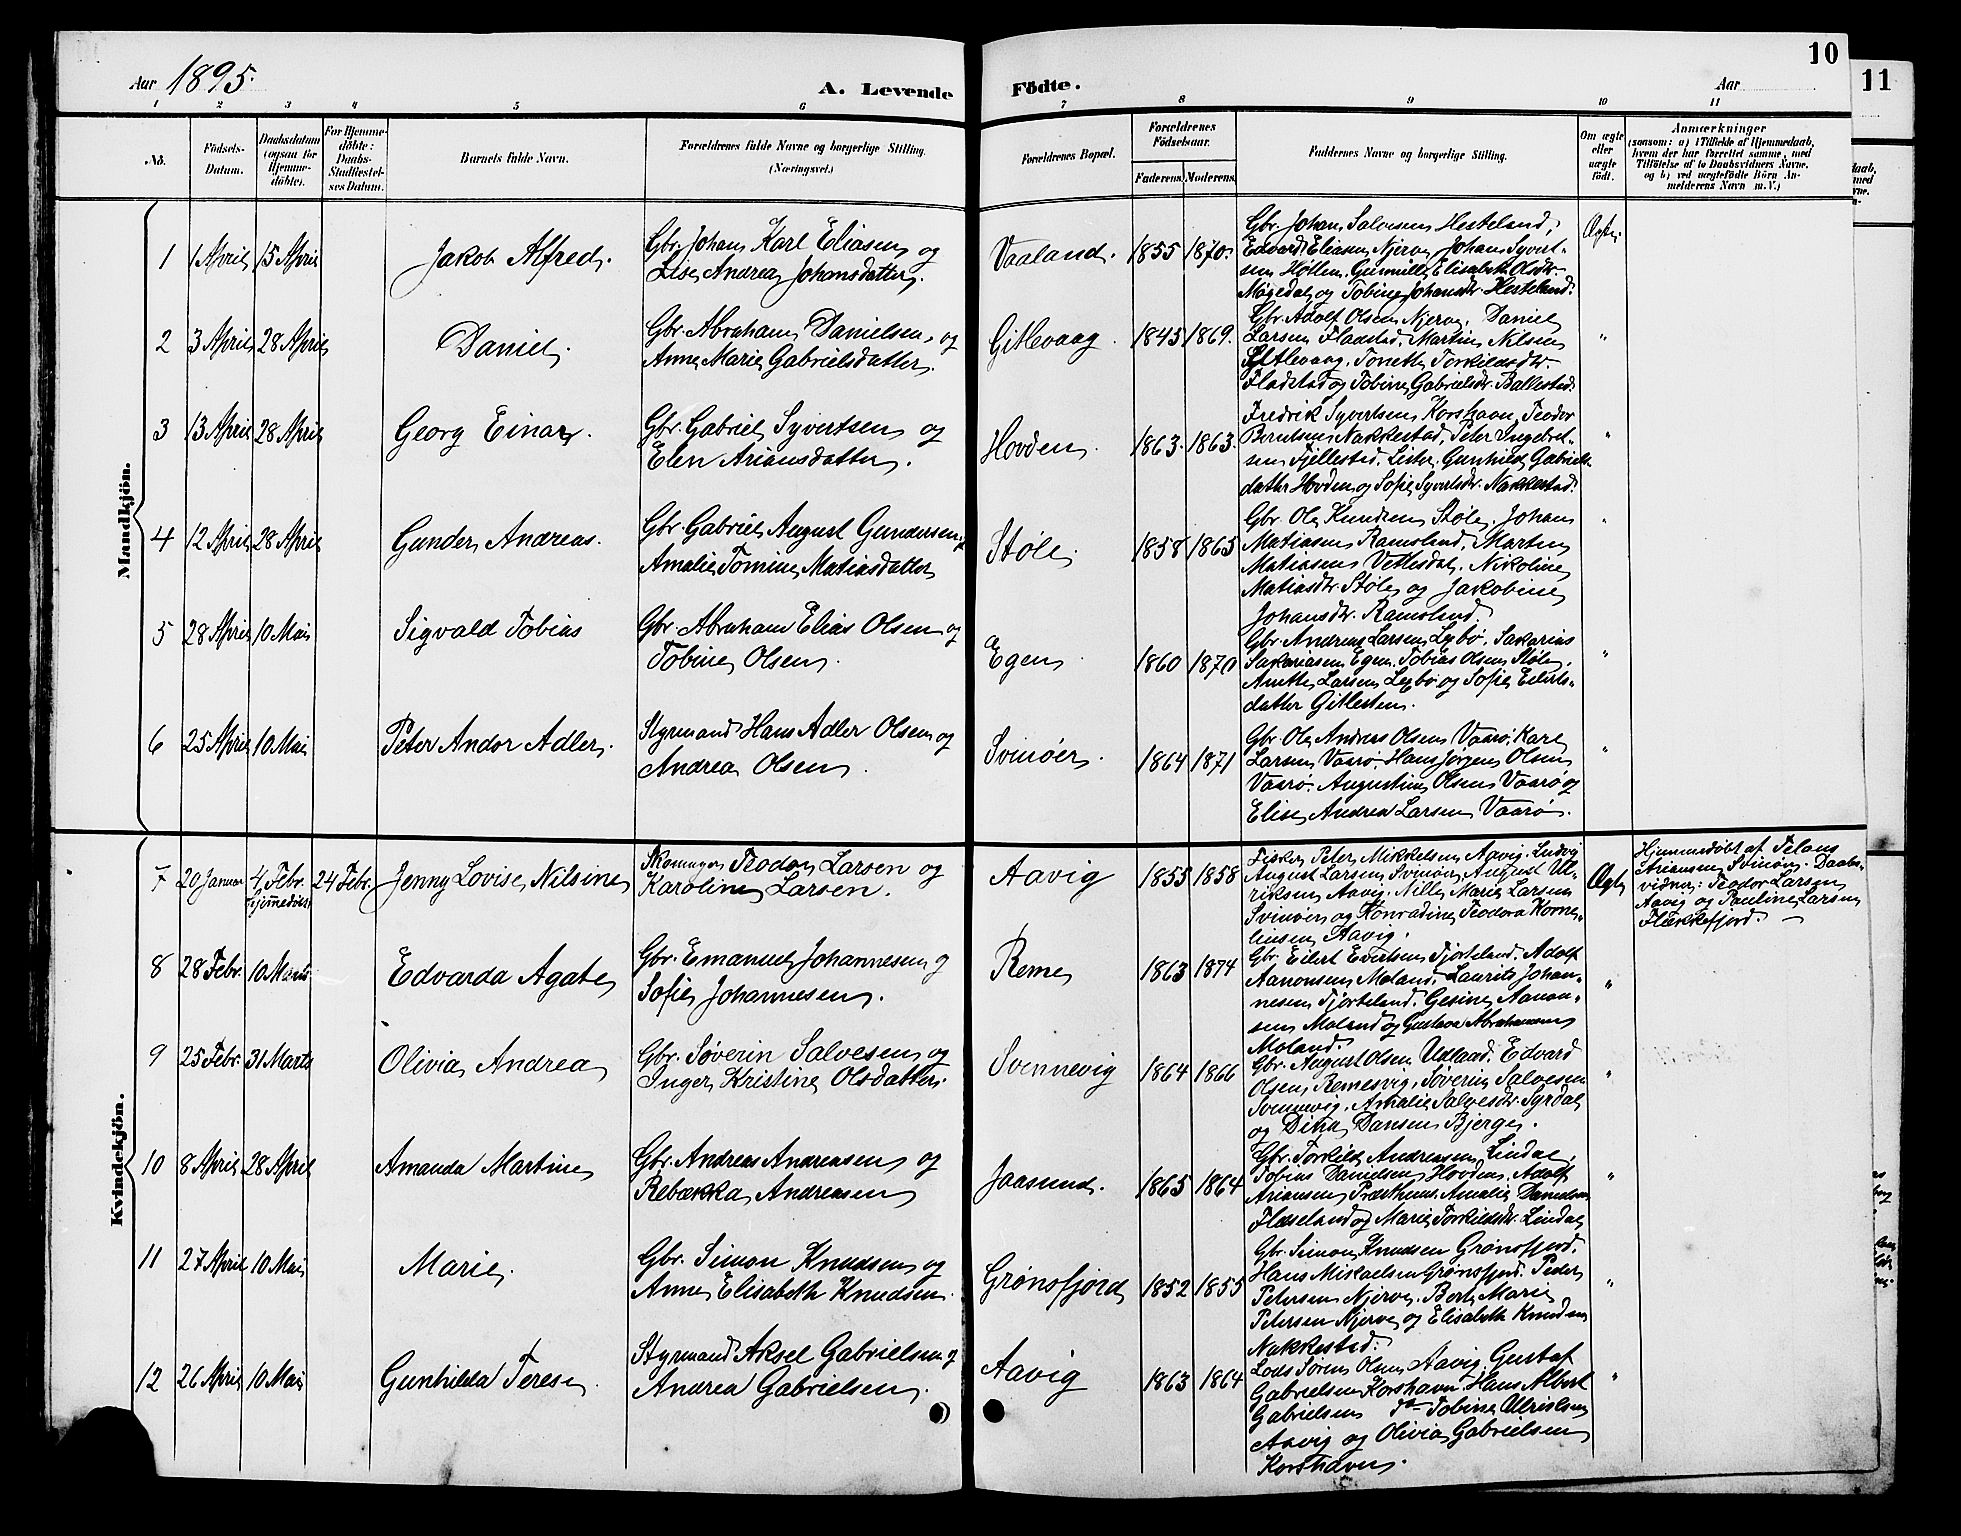 Aar 1895.
A. Levende Födte.
Aar
10
11
1 2 3 4 5 6 7 8 9 10 11
No.
Födsels-
Datum.
Daabsdatum
(ogsaa for
Hjemme-
döbte).
For Hjemme-
döbte:
Daabs-
Stadfæstel-
ses Datum.
Barnets fulde Navn.
Forældrenes fulde Navne og borgerlige Stilling.
(Næringsvei.)
Forældrenes Bopæl.
Forældrenes
Födselsaar.
Faderens. Moderens.
Faddernes Navne og borgerlige Stilling.
Om ægte
eller
uægte
födt.
Anmærkninger
(saasom: a) i Tilfælde af Hjemmedaab,
hvem der har forrettet samme, med
Tilföielse af to Daabsvidners Navne,
og b) ved uægtefödte Börn An-
melderens Navn m. V.)
Mandkjön.
1 1 April 15 April Jakob Alfred.
Gbr. Johan Karl Eliasen og
Lise Andrea Johansdatter.
Vaaland. 1855 1870.
Gbr. Johan Salvesen Hesteland,
Edvard Eliasen Njerve, Johan Syvert-
sen Høllen, Gunnille Elisabeth Olsdr.
Møgedal og Tobine Johansdr. Hesteland.
Ægte.
2 3 April 28 April Daniel.
Gbr. Abraham Danielsen og
Anne Marie Gabrielsdatter.
Gitlevaag. 1845 1869.
Gbr. Adolf Olsen Njerve, Daniel
Larsen Fladstad, Martin Nilsen
Gitlevaag, Tonette Torkildsdtr.
Fladstad og Tobine Gabrielsdr. Ballestad.
"
3 13 April 28 April Georg Einar.
Gbr. Gabriel Syvertsen og
Elen Ariansdatter.
Hovden. 1863. 1863.
Fredrik Syvertsen Korshavn, Teodor
Berntsen Nakkestad, Peter Ingebret-
sen Fjellestad, Lister, Gunhilde Gabriels-
datter Hovden og Sofie Syvertsdr. Nakkestad.
"
4 12 April 28 April Gunder Andreas.
Gbr. Gabriel August Gundersen &
Amalie Tomine Matiasdatter
Støle. 1858 1865
Gbr. Ole Knudsen Støle, Johan
Matiasen Ramsland, Martin
Matiasen Vetlesdal, Nikoline
Matiasdtr. Støle og Jakobine
Johansdtr. Ramsland.
"
5 28 April 10 Mai Sigvald Tobias
Gbr. Abraham Elias Olsen og
Tobine Olsen.
Egen. 1860 1870
Gbr. Andreas Larsen Lexbø, Sakarias
Sakariasen Egen, Tobias Olsen Støle,
Anette Larsen Lexbø og Sofie Eilerts-
datter Gitlesten.
"
6 25 April 10 Mai Peter Andor Adler.
Styrmand Hans Adler Olsen og
Andrea Olsen.
Svinøer. 1864 1871
Gbr. Ole Andreas Olsen Vaarø, Karl
Larsen Vaarø, Hans Jørgen Olsen
Vaarø, Augustine Olsen Vaarø og
Elise Andrea Larsen Vaarø.
"
Kvindekjön.
7 20 Januar 4 Febr. 24 Febr. Jenny Lovise Nilsine
Hjemmedøbt
Skomager Teodor Larsen og
Karoline Larsen.
Aavig 1855 1858
Fisker Peter Mikkelsen Aavig, Ludvig
August Larsen Svinøer, August Ul-
riksen Aavig, Nille Marie Larsen
Svinøer og Konradine Teodora Korne-
liusen Aavig.
Ægte
Hjemmedøbt af
Ariansen Svinøer. Daabs-
vidner: Teodor Larsen
Aavig og Pauline Larsen
Flækkefjord. —
8 28 Febr. 10 Marts Edvarda Agate
Gbr. Emanuel Johannesen og
Sofie Johannesen.
Reme 1863 1874
Gbr. Eilert Evertsen Tjorteland, Adolf
Aanonsen Moland, Laurits Johan-
nesen Tjorteland, Gesine Aanon-
sen Moland og Gustava Abrahamsen
Moland.
"
9 25 Febr. 31 Marts Olivia Andrea
Gbr. Søverin Salvesen og
Inger Kristine Olsdatter.
Svennevig 1864 1866
Gbr. August Olsen Udland, Edvard
Olsen Remesvig, Søverin Salvesen
Svennevig, Amalie Salvesdtr. Syrdal
og Dina Dansen Bjerge.
"
10 8 April 28 April Amanda Martine
Gbr. Andreas Andreasen og
Rebækka Andreasen
Jaasund. 1865 1864
Gbr. Torkild Andreasen Lindal,
Tobias Danielsen Hovden, Adolf
Ariansen Præsthuus, Amalie Danielsen
Flaseland og Marie Torkildsdtr. Lindal
"
11 27 April 10 Mai Marie.
Gbr. Simon Knudsen og
Anne Elisabeth Knudsen.
Grønsfjord 1852 1855
Gbr. Simon Knudsen Grønsfjord,
Hans Mikaelsen Grønsfjord, Peder
Petersen Njerve, Berte Marie
Petersen Njerve og Elisabeth Knudsen
Nakkestad.
"
12 26 April 10 Mai Gunhilda Terese.
Styrmand Aksel Gabrielsen og
Andrea Gabrielsen.
Aavig 1863 1864
Lods Søren Olsen Aavig, Gustaf
Gabrielsen Korshavn, Hans Albert
Gabrielsen do Tobine Ulriksen
Aavig og Olivia Gabrielsen
Korshavn.
"